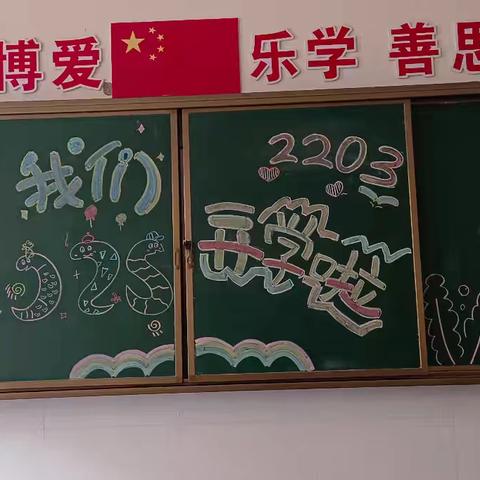 博爱 乐学 善思
我们
2203
开学啦